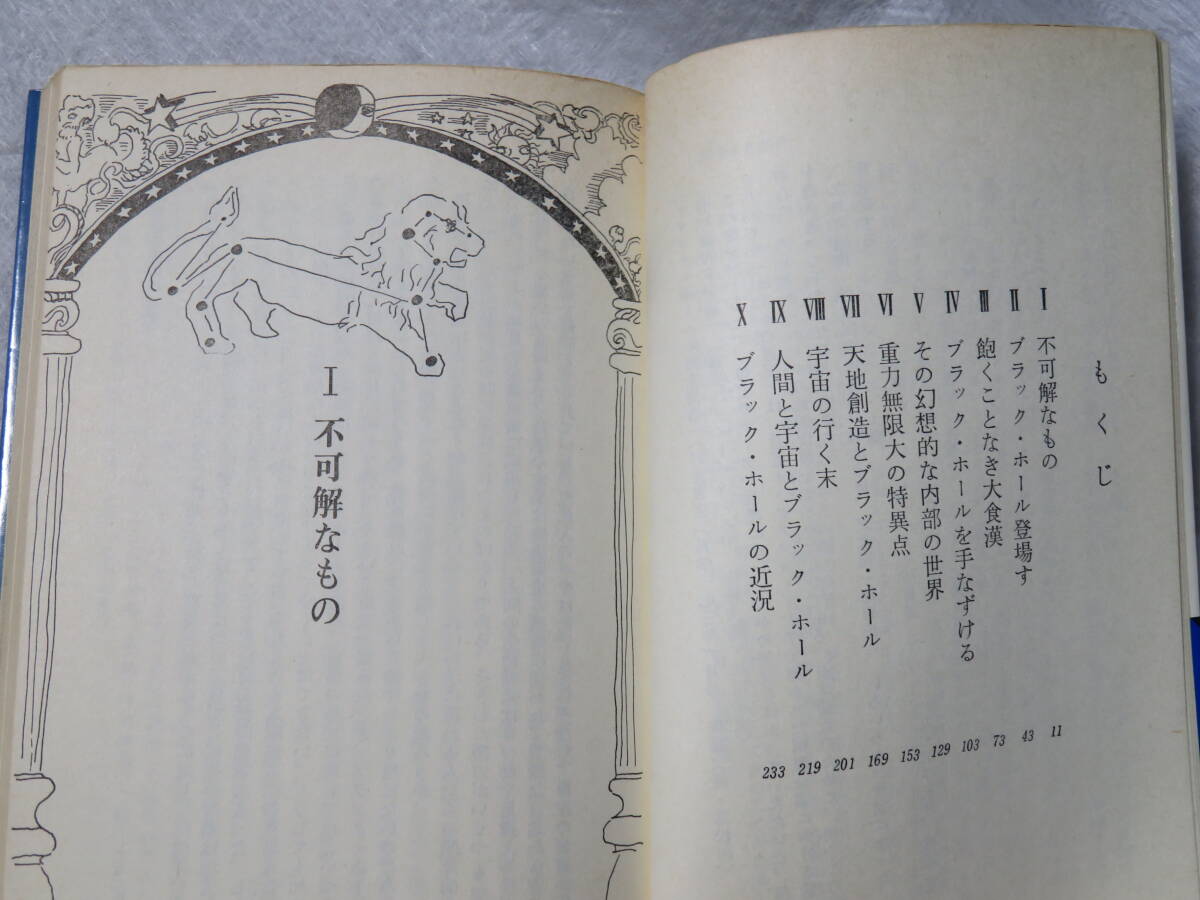 もくじ
Ⅰ 不可解なもの 11
Ⅱ ブラック・ホール登場す 43
Ⅲ 飽くことなき大食漢 73
Ⅳ ブラック・ホールを手なずける 103
Ⅴ その幻想的な内部の世界 129
Ⅵ 重力無限大の特異点 153
Ⅶ 天地創造とブラック・ホール 169
Ⅷ 宇宙の行く末 201
Ⅸ 人間と宇宙とブラック・ホール 219
Ⅹ ブラック・ホールの近況 233
Ⅰ 不可解なもの